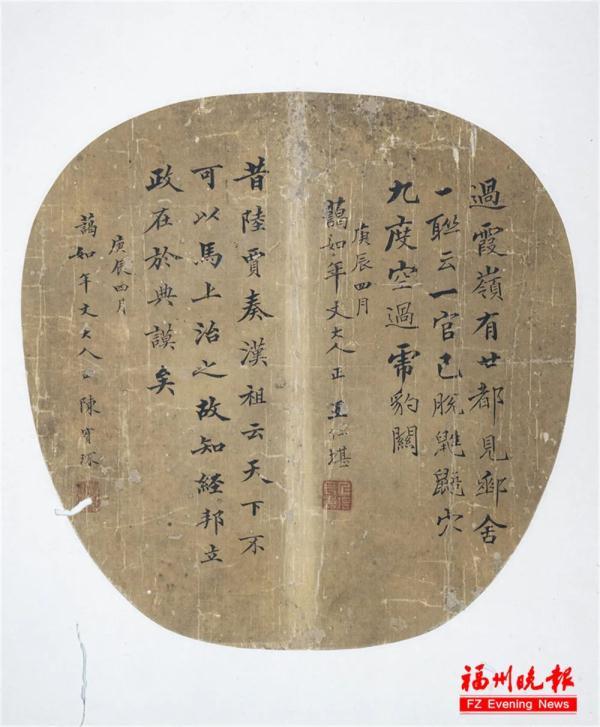 過霞嶺有廿都見郵舍
一聯云一官已脫鼪鼯穴
九度空過虎豹關
庚辰四月
藹如年丈大人正 王仁堪
昔陸賈奏漢祖云天下不
可以馬上治之故知經邦立
政在於典謨矣
庚辰四月
藹如年丈大人正 陳寶琛
福州晚報
FZ Evening News